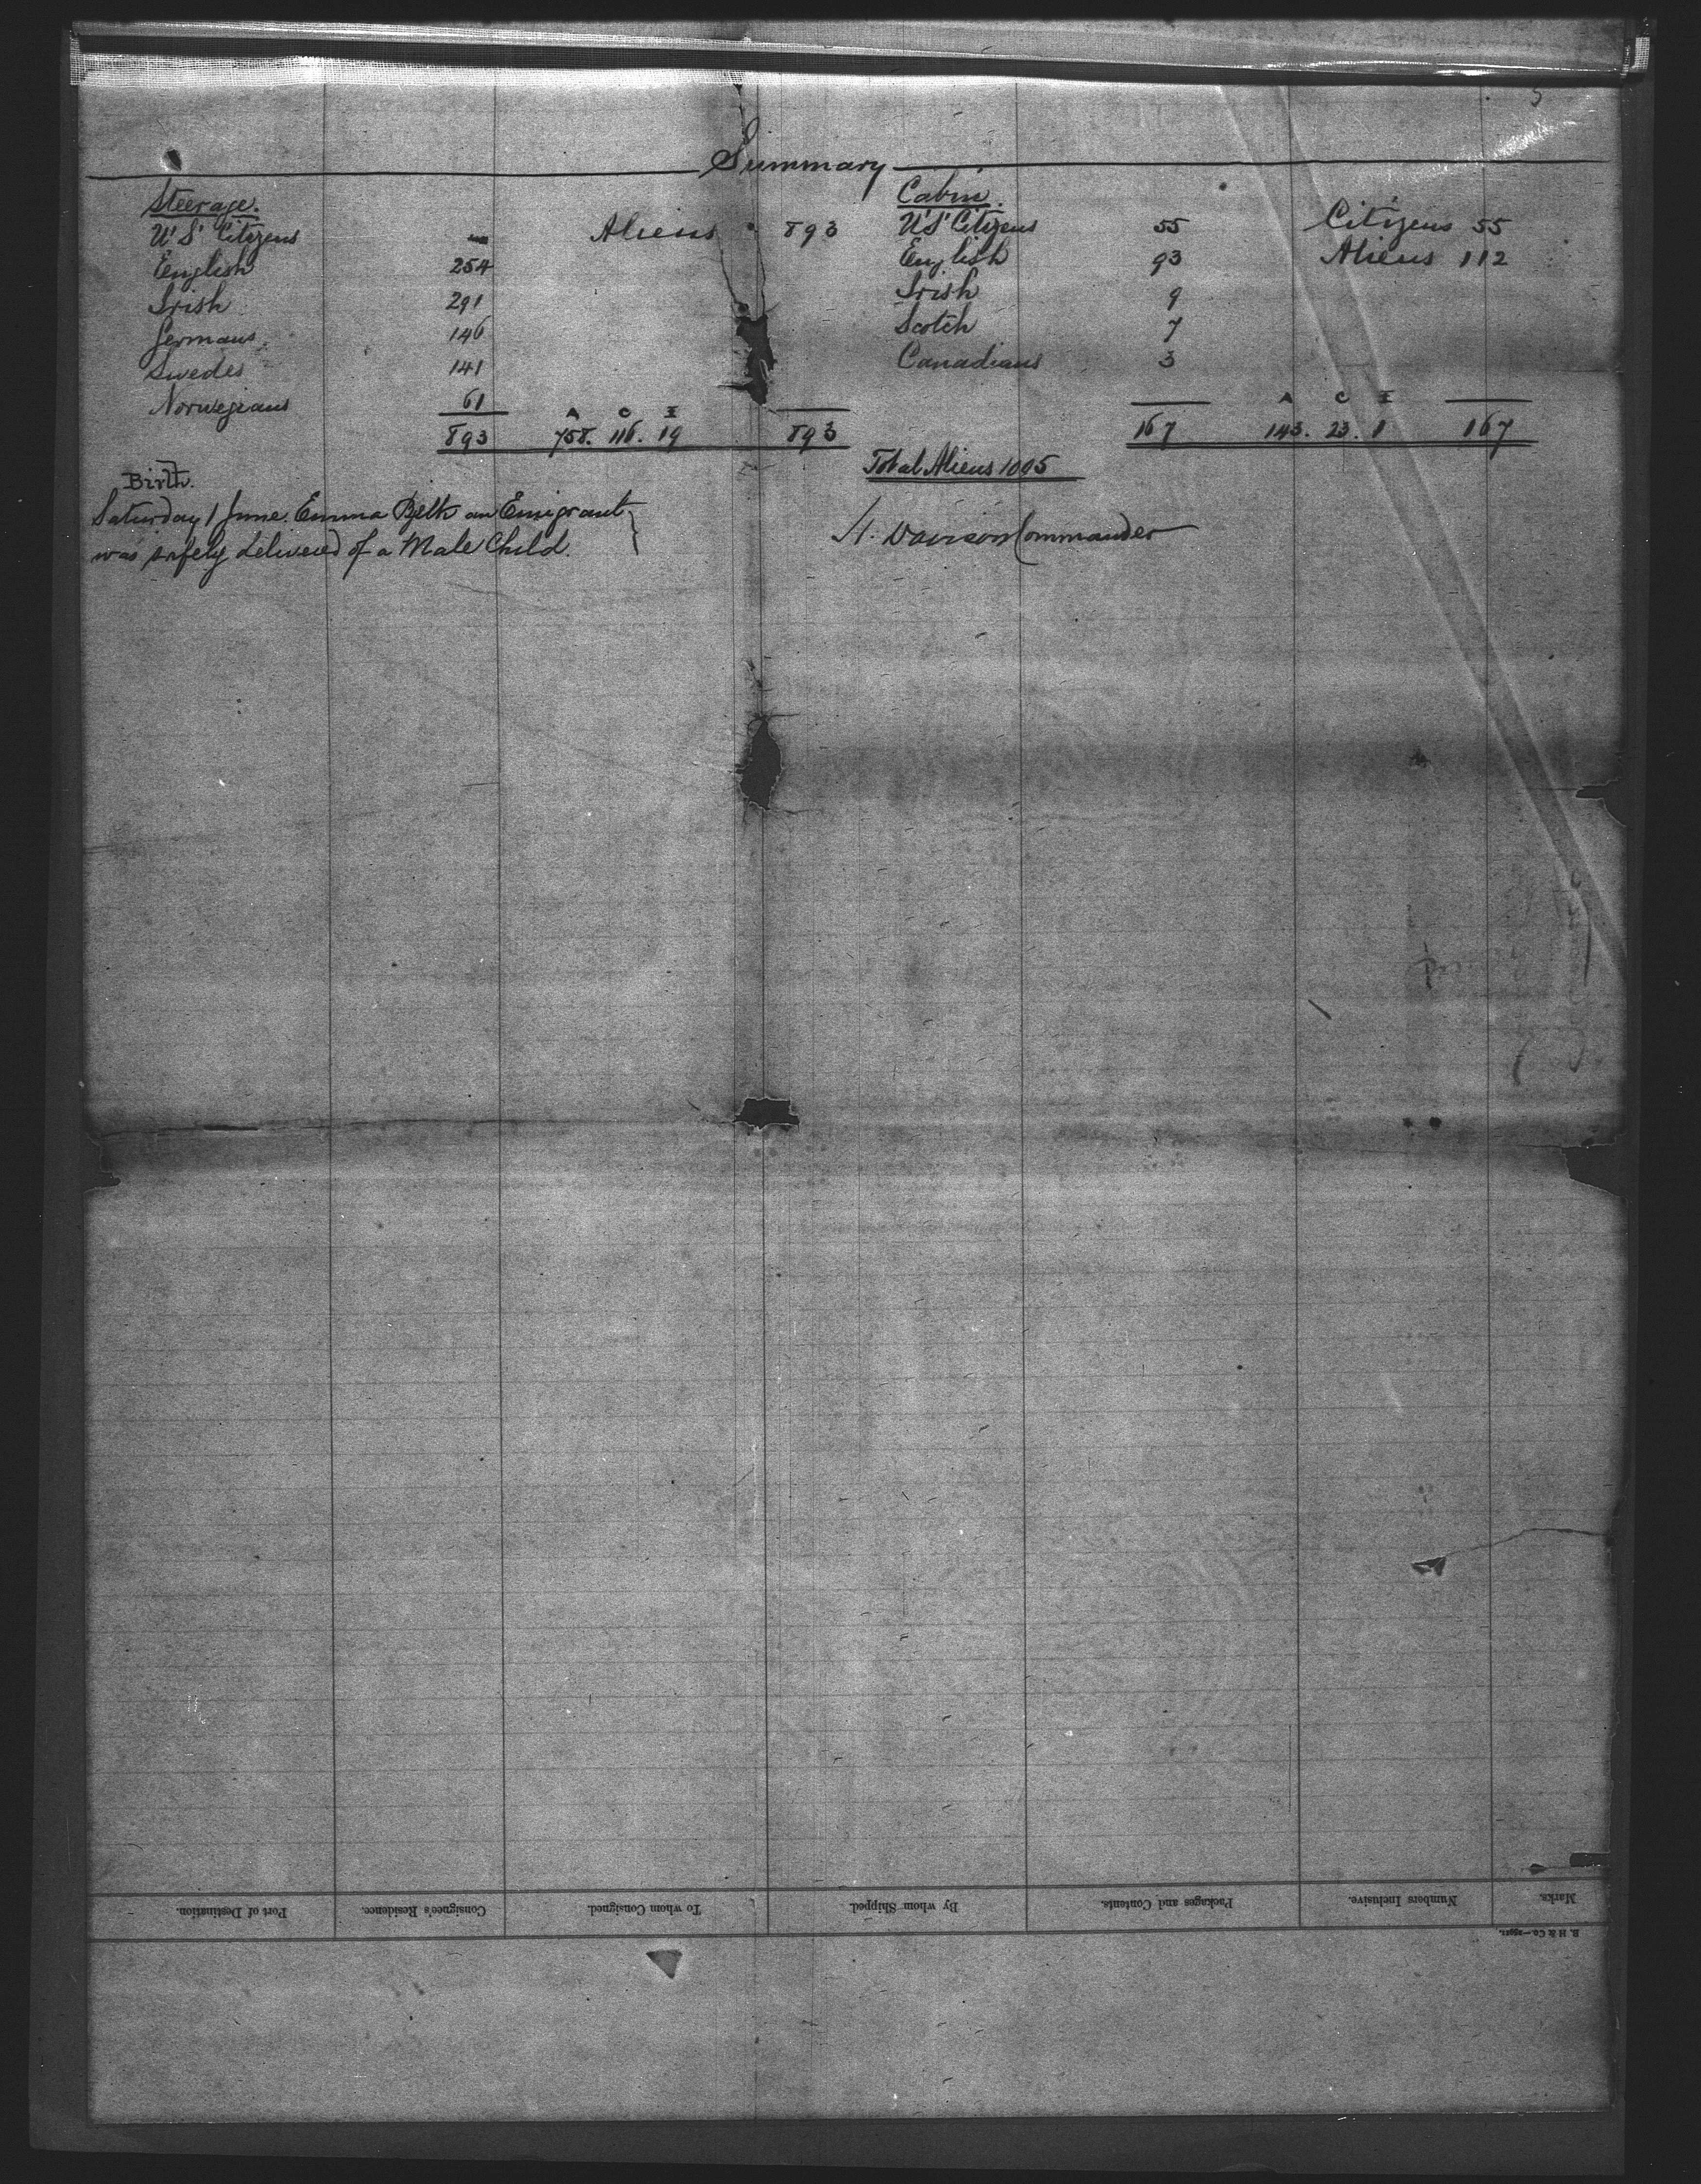 Summary
Steerage.
U'S' Citizens — Aliens 893
English 254
Irish 291
Germans. 146
Swedes 141
Norwegians 61
A C I
893 758. 116. 19 893
Cabin.
U'S' Citizens 55 Citizens 55
English 93 Aliens 112
Irish 9
Scotch 7
Canadians 3
A C I
167 143. 23. 1 167
Total Aliens 1005
Birth.
Saturday 1 June. Emma an Emigrant
was safely delivered of a Male Child.
H. Davison Commander
Marks. Numbers Inclusive. Packages and Contents. By whom Shipped. To whom Consigned. Consignee's Residence. Port of Destination.
B. H & Co.